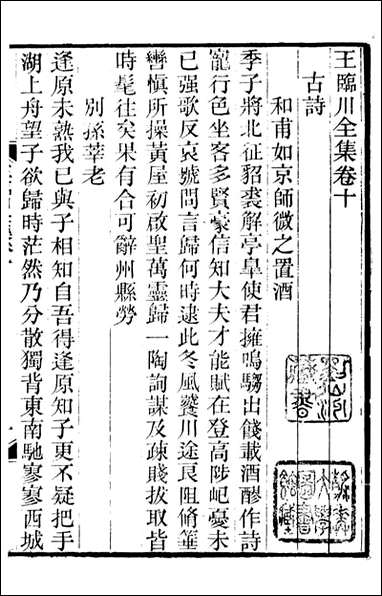 王臨川全集卷十
古詩
和甫如京師微之置酒
季子將北征貂裘解亭皐使君擁鳴騶出餞載酒醪作詩
寵行色坐客多賢豪信知大夫才能賦在登高陟屺憂未
已强歌反哀號問言歸何時逮此冬風饕川途良阻脩箠
轡愼所操黃屋初啟聖萬靈歸一陶詢謀及疎賤拔取皆
時髦往矣果有合可辭州縣勞
別孫莘老
逢原未熟我已與子相知自吾得逢原知子更不疑把手
湖上舟望子欲歸時茫然乃分散獨背東南馳寥寥西城